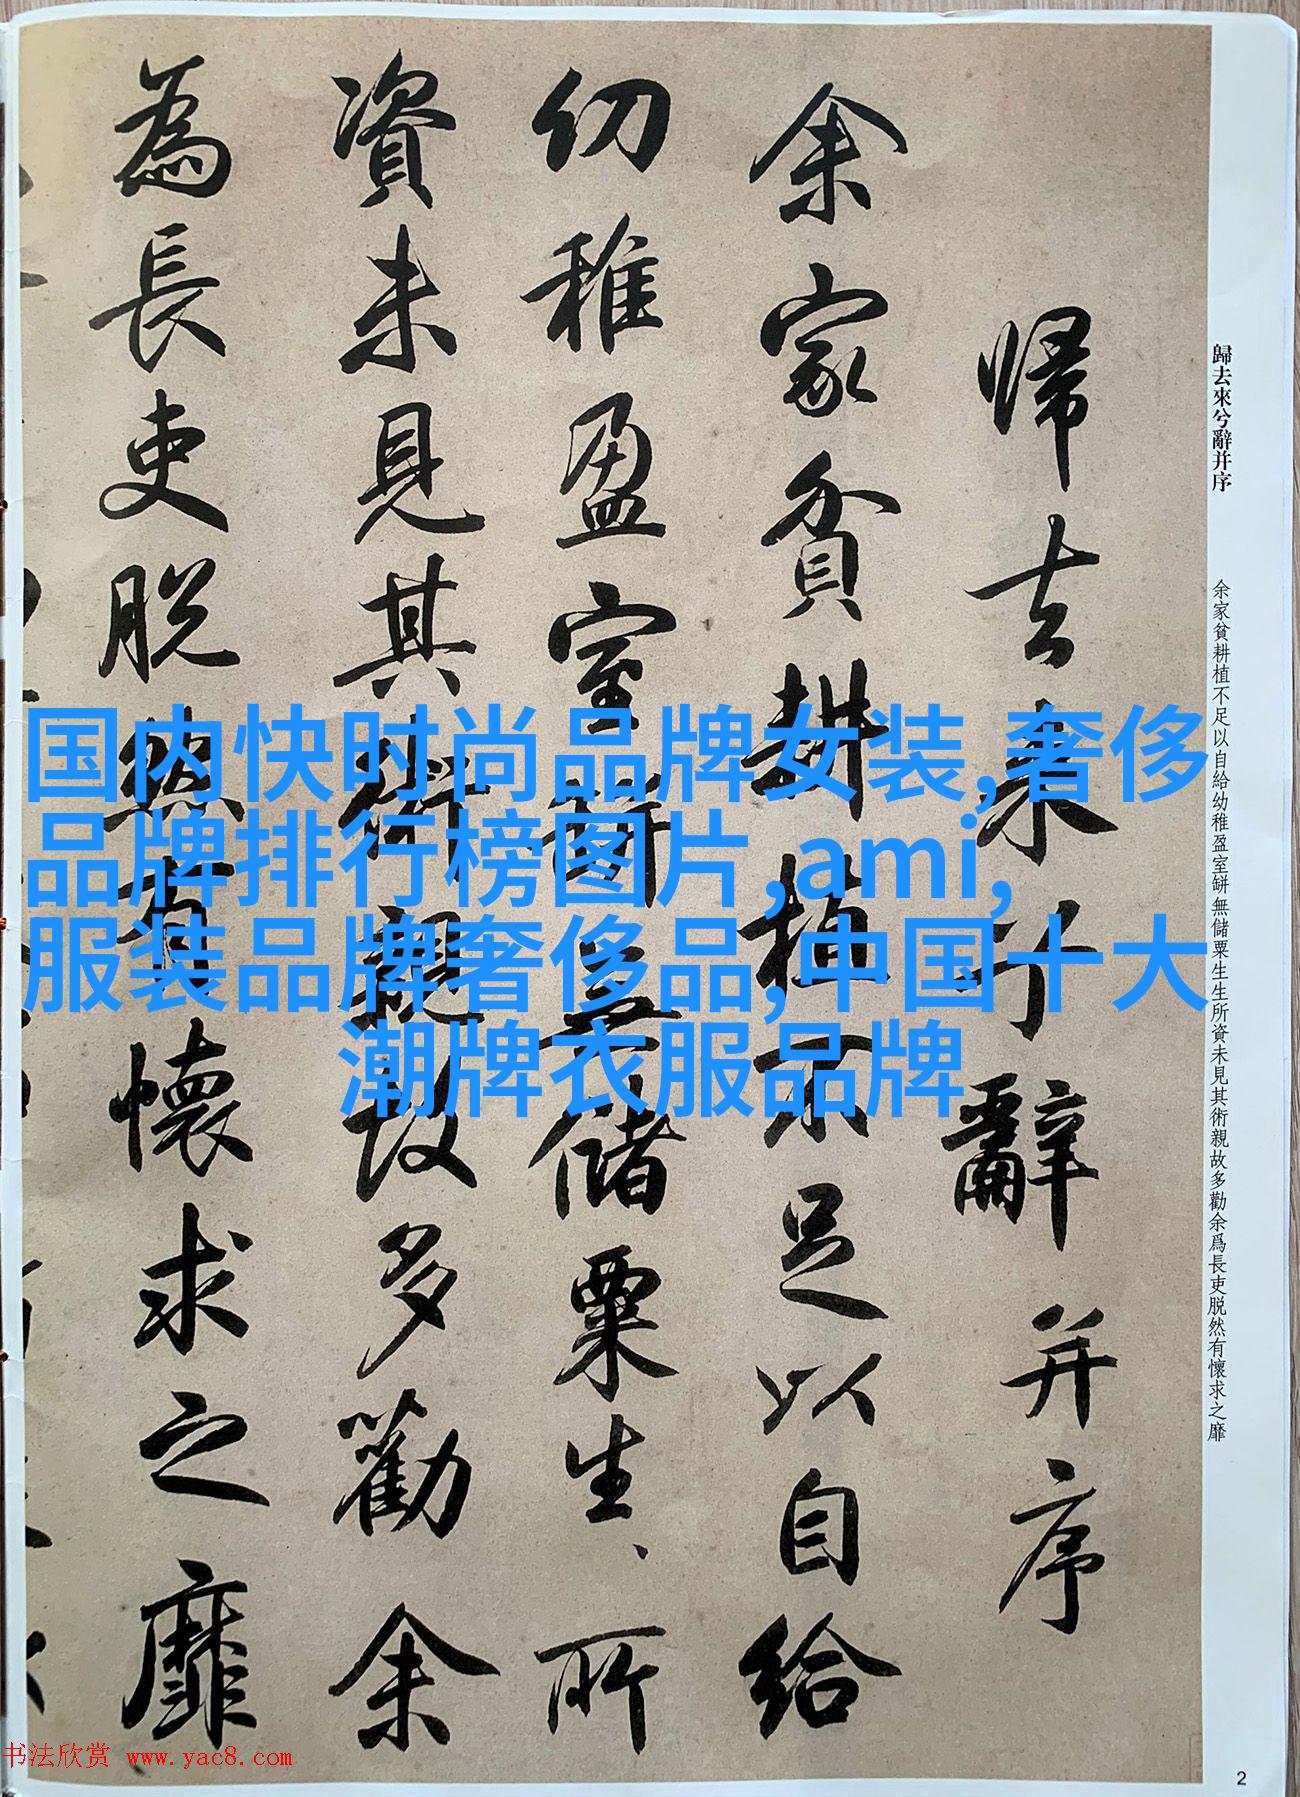 歸去來兮辭并序
余家貧耕植不足以自給幼稚盈室缾無儲粟生生所資未見其術親故多勸余爲長吏脱然有懷求之靡
歸去来兮辭并序
余家貧耕植不足以自給
幼稚盈室缾無儲粟生、所
資未見其術親故多勸余
為長吏脱然有懷求之靡
国内快时尚品牌女装,奢侈
品牌排行榜图片,ami,
服装品牌奢侈品,中国十大
潮牌衣服品牌
书法欣赏 www.yac8.com
2